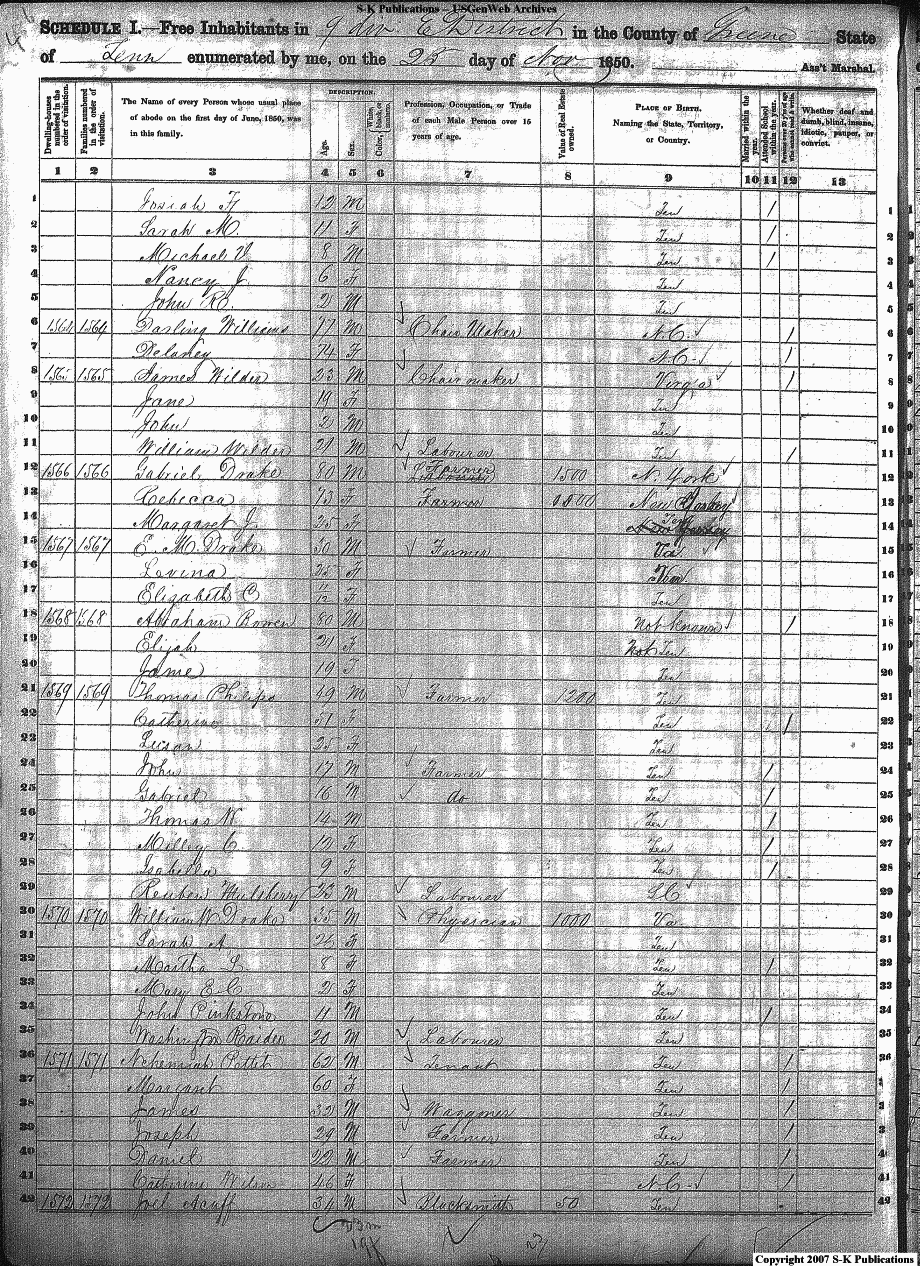 S-K Publications – USGenWeb Archives
SCHEDULE I.—Free Inhabitants in 9 div E District in the County of Greene State
of Tenn enumerated by me, on the 25 day of Nov 1850. Ass't Marshal.
Dwelling-houses numbered in the order of visitation.
Families numbered in the order of visitation.
The Name of every Person whose usual place of abode on the first day of June, 1850, was in this family.
DESCRIPTION.
Age.
Sex.
White, black, or mulatto.
Color,
Profession, Occupation, or Trade of each Male Person over 15 years of age.
Value of Real Estate owned.
PLACE OF BIRTH. Naming the State, Territory, or Country.
Married within the year.
Attended School within the year.
Persons over 20 y'rs of age who cannot read & write.
Whether deaf and dumb, blind, insane, idiotic, pauper, or convict.
1 2 3 4 5 6 7 8 9 10 11 12 13
1 Josiah F 12 M Ten / 1
2 Sarah M. 11 F Ten / 2
3 Michael V 8 M Ten / 3
4 Nancy J. 6 F Ten 4
5 John R. 2 M Ten 5
6 1564 1564 Darling Williams 77 M Chair Maker N.C. / 6
7 Delaney 74 F N.C. / 7
8 1565 1565 James Wilder 23 M Chairmaker Virga / 8
9 Jane 19 F Ten 9
10 John 2 M Ten 10
11 William Wilder 21 M Labourer Ten / 11
12 1566 1566 Gabriel Drake 80 M Farmer 1500 N. York 12
13 Rebecca 73 F Farmer New Jersey 13
14 Margaret J. 25 F Ten 14
15 1567 1567 E. M. Drake 30 M Farmer Va 15
16 Lovina 25 F Ten 16
17 Elizabeth C /12 F Ten 17
18 1568 1568 Abraham Bowen 80 M Not Known / 18
19 Elijah 21 F Ten 19
20 Jane 19 F Ten 20
21 1569 1569 Thomas Philips 49 M Farmer 1200 Ten 21
22 Catherine 51 F Ten / 22
23 Susan 25 F Ten 23
24 John 17 M Farmer Ten / 24
25 Gabriel 16 M do Ten / 25
26 Thomas W. 14 M Ten / 26
27 Milley C. 12 F Ten / 27
28 Isabella 9 F Ten / 28
29 Reuben Hulsberry 23 M Labourer S.C 29
30 1570 1570 William W Drake 35 M Physician 1000 Va 30
31 Sarah A 26 F Ten 31
32 Martha L 8 F Ten / 32
33 Mary E C 2 F Ten 33
34 John Pinkston 11 M Ten / 34
35 Washington Raider 20 M Labourer Ten 35
36 1571 1571 Nehemiah Pettet 62 M Tenant Ten / 36
37 Margaret 60 F Ten /
38 James 32 M Waggoner Ten /
39 Joseph 29 M Farmer Ten /
40 Daniel 22 M Farmer Ten / 40
41 Catherine Wilson 46 F N.C. / 41
42 1572 1572 Joel Acuff 34 M Blacksmith 50 Ten 42
Copyright 2007 S-K Publications